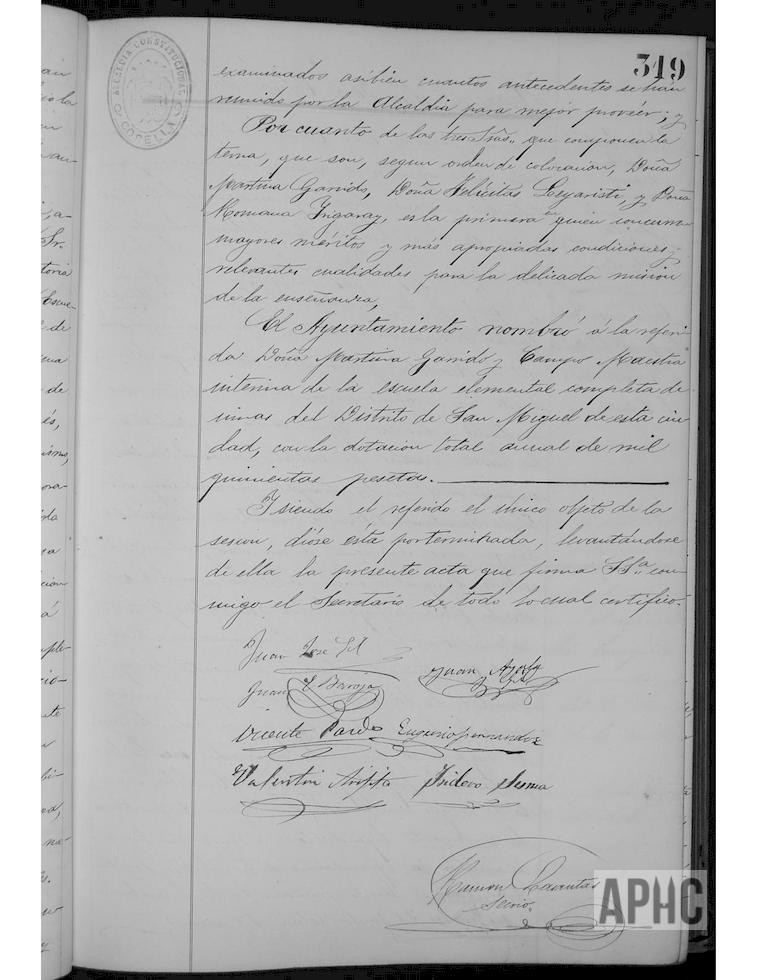 349
ALCALDIA CONSTITUCIONAL
CORELLA
examinados asibien cuantos antecedentes se han
reunido por la Alcaldia para mejor provéer; y
Por cuanto de las tres Sras. que componen la
terna, que son, segun orden de colocacion, Doña
Martina Garrido, Doña Felicitas Leyaristi, y Doña
Romana Yrigaray, es la primera en quien concurren
mayores méritos y más apropiadas condiciones y
relevantes cualidades para la delicada mision
de la enseñanza,
El Ayuntamiento nombró á la referi
da Doña Martina Garrido y Campo Maestra
interina de la escuela elemental completa de
niñas del Distrito de San Miguel de esta ciu
dad, con la dotacion total anual de mil
quinientas pesetas.
Y siendo el referido el único objeto de la
sesion, dióse ésta por terminada, levantándose
de ella la presente acta que firma SSª. con
migo el Secretario de todo lo cual certifico.
Juan José Gil
Juan Ayala
Juan Y Baroja
Vicente Pardo Eugenio Fernandez
Valentin Arifita Ysidoro Sesma
Ramon
Secrio.
APHC